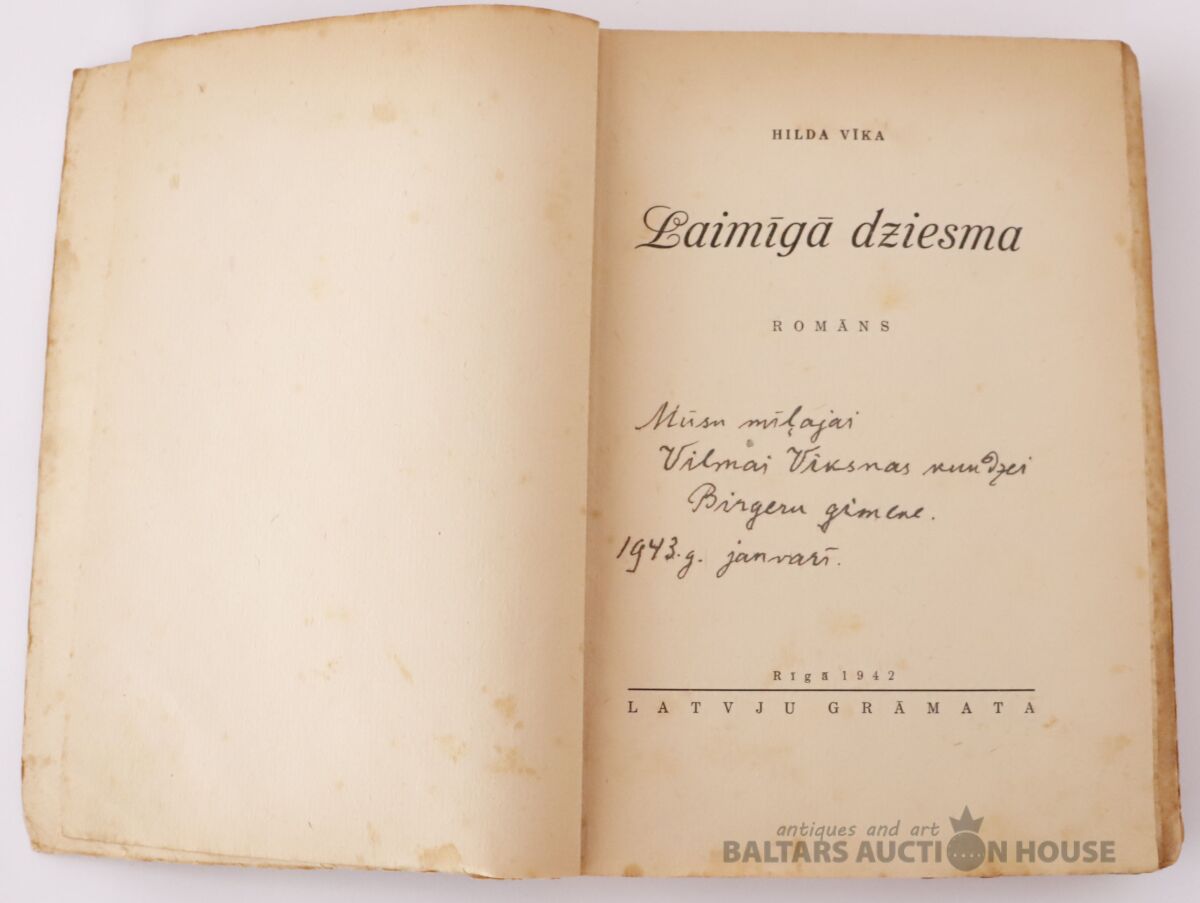 HILDA VĪKA
Laimīgā dziesma
ROMĀNS
Mūsu mīļajai
Vilmai Vīksnas kundzei
Birgeru ģimene.
1943. g. janvarī.
Rīgā 1942
LATVJU GRĀMATA
antiques and art
BALTARS AUCTION HOUSE